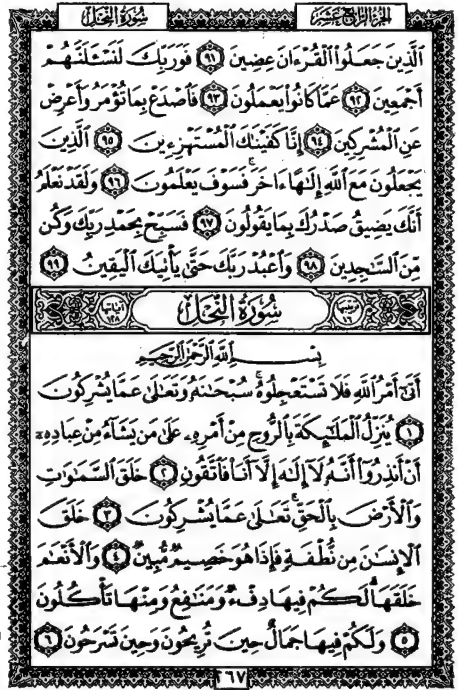 سُورَةُ النَّحْل الجُزْءُ الرَّابِعُ عَشَر
الَّذِينَ جَعَلُوا الْقُرْءَانَ عِضِينَ ٩١ فَوَرَبِّكَ لَنَسْـَٔلَنَّهُمْ
أَجْمَعِينَ ٩٢ عَمَّا كَانُوا يَعْمَلُونَ ٩٣ فَاصْدَعْ بِمَا تُؤْمَرُ وَأَعْرِضْ
عَنِ الْمُشْرِكِينَ ٩٤ إِنَّا كَفَيْنَاكَ الْمُسْتَهْزِءِينَ ٩٥ الَّذِينَ
يَجْعَلُونَ مَعَ اللَّهِ إِلَٰهًا ءَاخَرَ ۚ فَسَوْفَ يَعْلَمُونَ ٩٦ وَلَقَدْ نَعْلَمُ
أَنَّكَ يَضِيقُ صَدْرُكَ بِمَا يَقُولُونَ ٩٧ فَسَبِّحْ بِحَمْدِ رَبِّكَ وَكُن
مِّنَ السَّاجِدِينَ ٩٨ وَاعْبُدْ رَبَّكَ حَتَّىٰ يَأْتِيَكَ الْيَقِينُ ٩٩
ترتيبها ١٦ سُورَةُ النَّحْل آياتها ١٢٨
بِسْمِ اللَّهِ الرَّحْمَٰنِ الرَّحِيمِ
أَتَىٰ أَمْرُ اللَّهِ فَلَا تَسْتَعْجِلُوهُ ۚ سُبْحَانَهُ وَتَعَالَىٰ عَمَّا يُشْرِكُونَ
١ يُنَزِّلُ الْمَلَائِكَةَ بِالرُّوحِ مِنْ أَمْرِهِ عَلَىٰ مَن يَشَاءُ مِنْ عِبَادِهِ
أَنْ أَنذِرُوا أَنَّهُ لَا إِلَٰهَ إِلَّا أَنَا فَاتَّقُونِ ٢ خَلَقَ السَّمَاوَاتِ
وَالْأَرْضَ بِالْحَقِّ ۚ تَعَالَىٰ عَمَّا يُشْرِكُونَ ٣ خَلَقَ
الْإِنسَانَ مِن نُّطْفَةٍ فَإِذَا هُوَ خَصِيمٌ مُّبِينٌ ٤ وَالْأَنْعَامَ
خَلَقَهَا ۗ لَكُمْ فِيهَا دِفْءٌ وَمَنَافِعُ وَمِنْهَا تَأْكُلُونَ
٥ وَلَكُمْ فِيهَا جَمَالٌ حِينَ تُرِيحُونَ وَحِينَ تَسْرَحُونَ ٦
٢٦٧